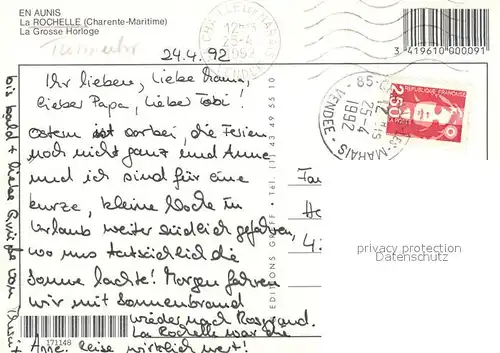 EN AUNIS
La ROCHELLE (Charente-Maritime)
La Grosse Horloge
24.4.92
Ihr lieben, liebe Mama,
lieber Papa, lieber Tobi!
Ostern ist vorbei, die Ferien
noch nicht ganz und Anne
und ich sind für eine
kurze, kleine Woche in
Urlaub weiter südlich gefahren,
wo uns tatsächlich die
Sonne lachte! Morgen fahren
wir mit Sonnenbrand
wieder nach
La Rochelle war die
Anne. Reise wirklich wert!
bis bald + liebe Grüße von
171148
EDITIONS GREFF • Tél. (1) 43 49 55 10
3 419610 900091
25-4
1992
VENDEE
85
12 15
25-4
1992
VENDEE
REPUBLIQUE FRANÇAISE
2,50
LA POSTE
privacy protection
Datenschutz